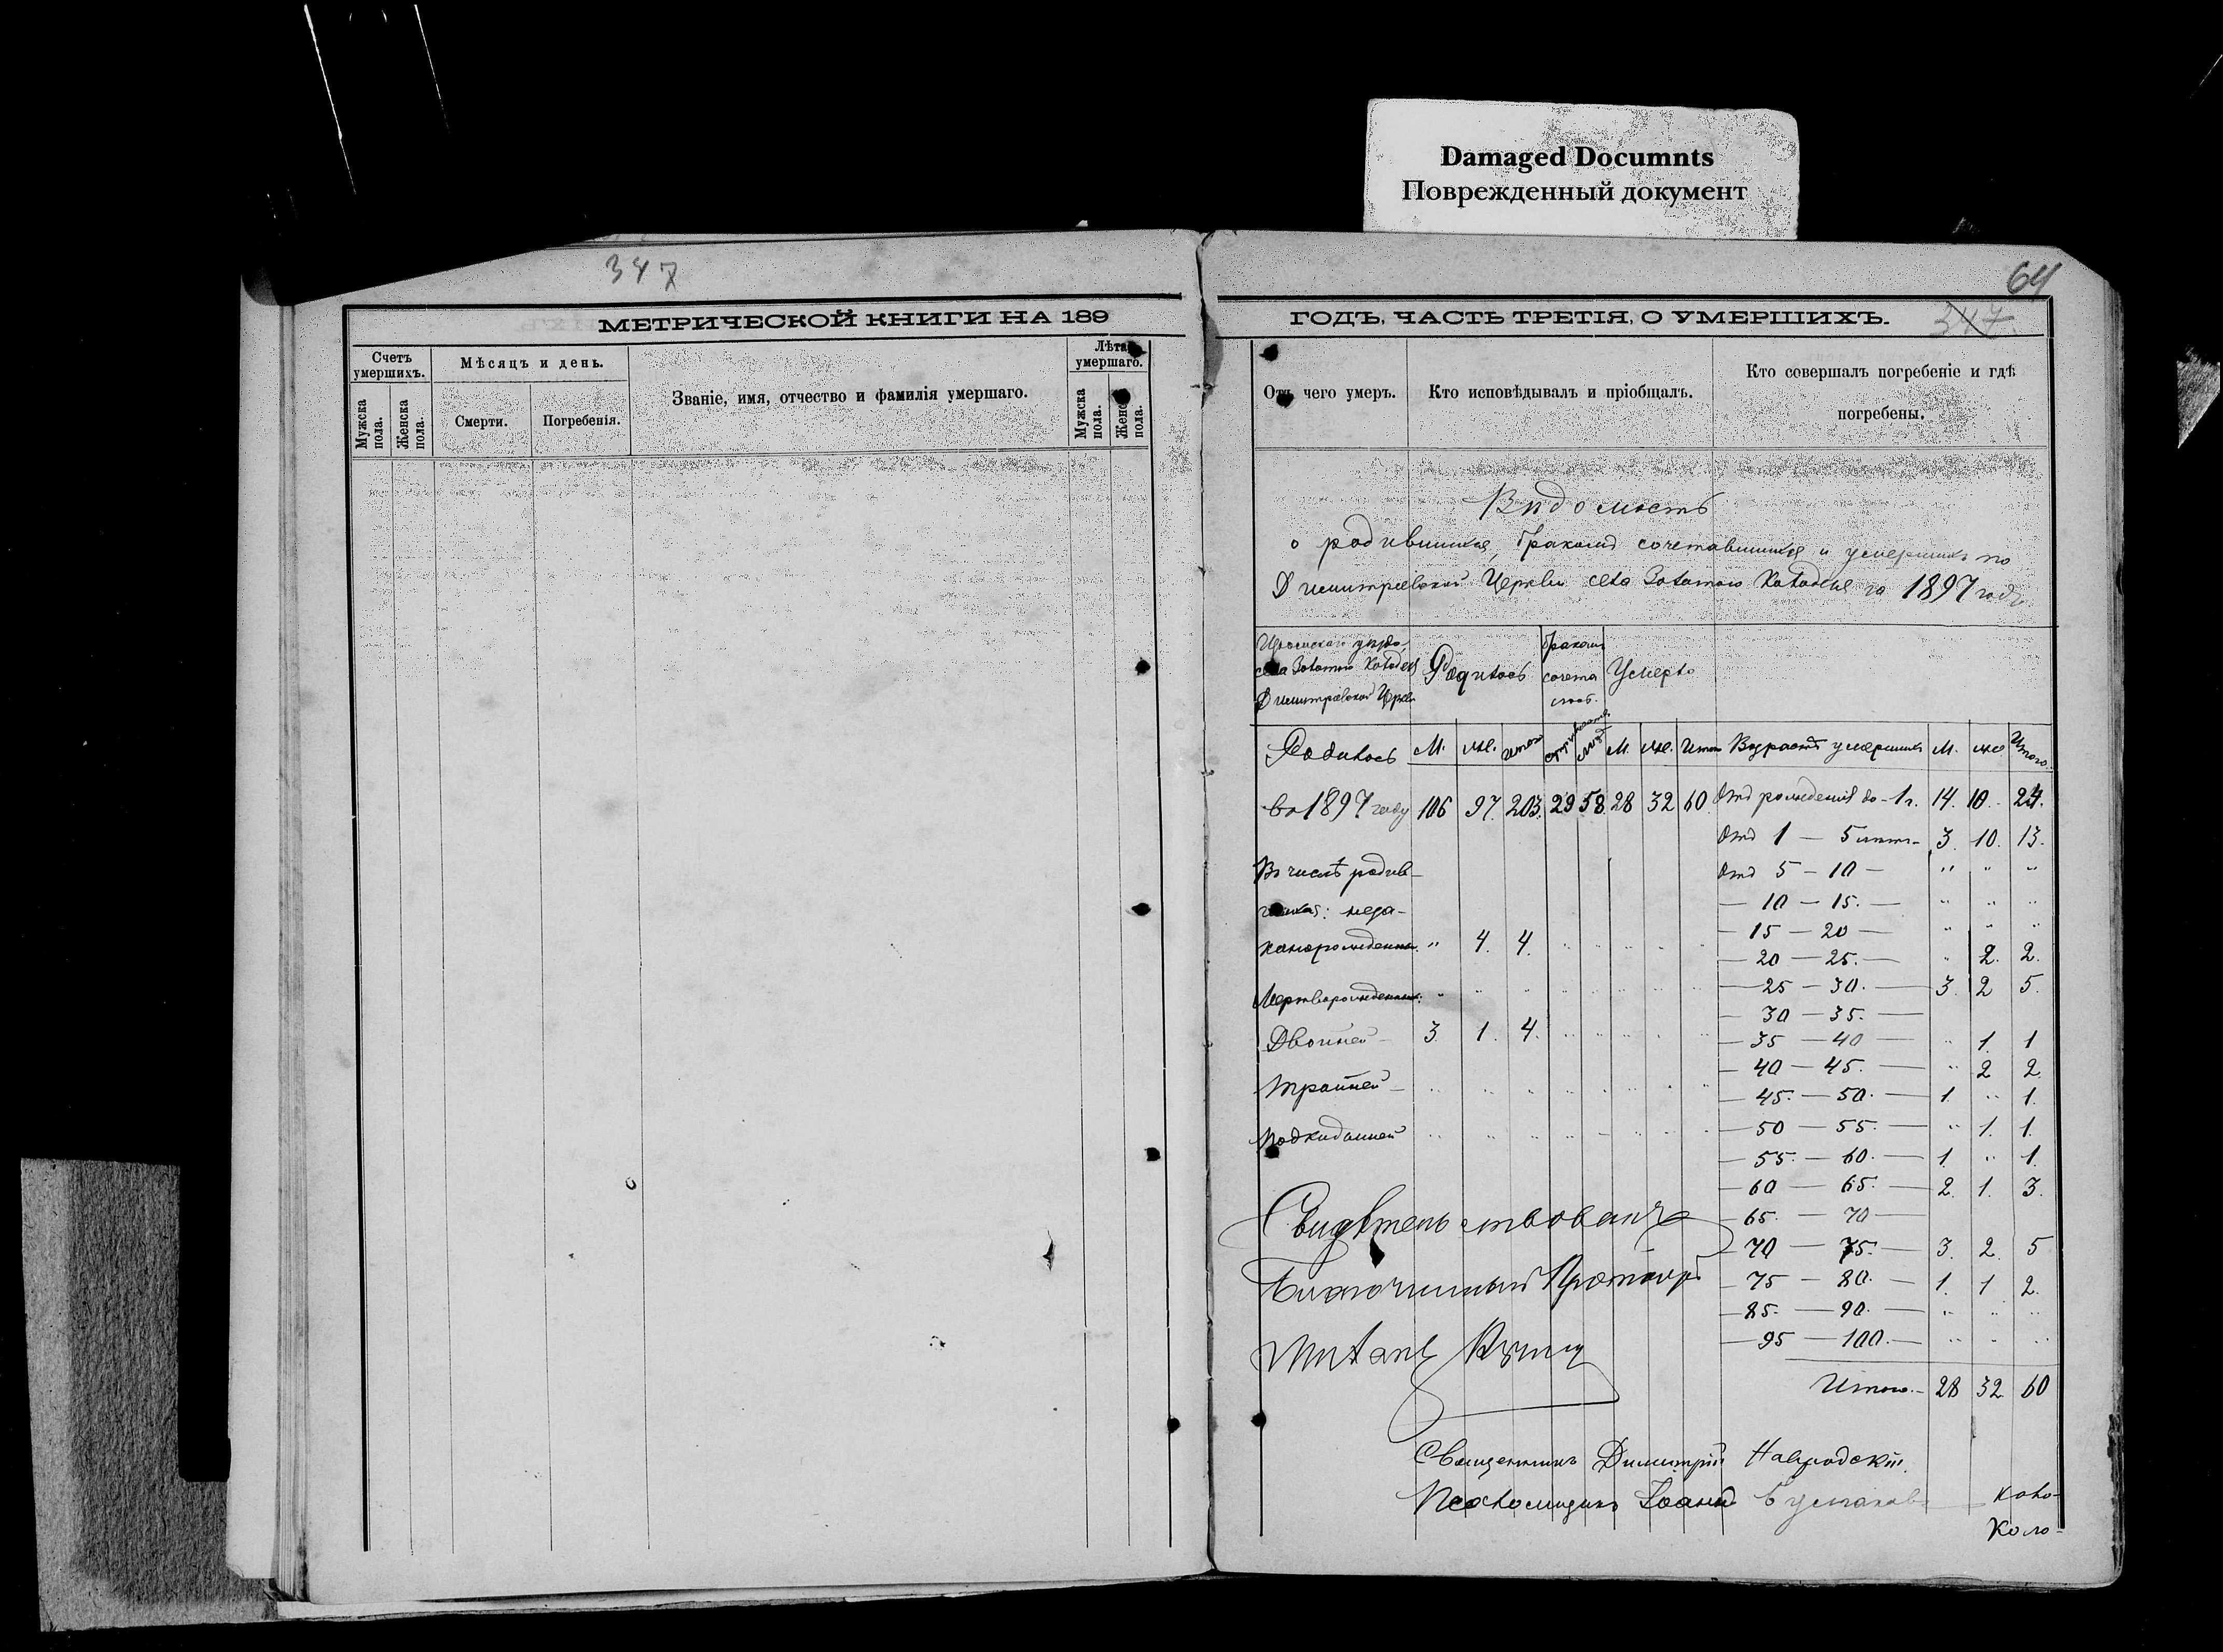 Damaged Documnts
Поврежденный документ
347
МЕТРИЧЕСКОЙ КНИГИ НА 189
Счетъ умершихъ.
Мужска пола.
Женска пола.
Мѣсяцъ и день.
Смерти.
Погребенія.
Званіе, имя, отчество и фамилія умершаго.
Лѣта умершаго.
Мужска пола.
Женс пола.
64
347.
ГОДЪ, ЧАСТЬ ТРЕТІЯ, О УМЕРШИХЪ.
Отъ чего умеръ.
Кто исповѣдывалъ и пріобщалъ.
Кто совершалъ погребеніе и гдѣ
погребены.
Вѣдомость
о родившихся, бракомъ сочетавшихся и умершихъ по
Димитріевской Церкви села Золотого Колодезя за 1897 годъ
уѣзда,
села Золотого Колодезя
Димитріевской Церкви
Родилось
Бракомъ
сочета
лось.
Умерло
Родилось М. же. итого М. же. Итого Возрастъ умершихъ М. же Итого.
въ 1897 году 106 97. 203. 29 58. 28 32 60 Отъ рожденія до - 1 г. 14. 10. 24.
Отъ 1 — 5 лѣтъ - 3. 10. 13.
Въ числѣ родив-
Отъ 5 — 10 — " " "
шихся: неза-
— 10 — 15. — " " "
— 15 — 20 — " " "
коннорожденны. " 4. 4.
— 20 — 25. — " 2. 2.
Мертворожденны.
— 25 — 30. — 3. 2 5.
— 30 — 35. —
Двойней - 3. 1. 4.
— 35 — 40 — " 1. 1
— 40 — 45. — " 2 2.
Тройней -
— 45. — 50. — 1. " 1.
Подкидышей
— 50 — 55. — " 1. 1.
— 55. — 60. — 1. " 1.
— 60 — 65. — 2. 1. 3.
Свидѣтельствовалъ
— 65. — 70 —
— 70 — 75. — 3. 2. 5
Благочинный Протоіерей
— 75 — 80. — 1. 1 2.
— 85. — 90. — " " "
— 95 — 100. — " " "
Итого. - 28 32 60
Священникъ Димитрій Навродскій.
Псаломщикъ Іоаннъ
Коло-